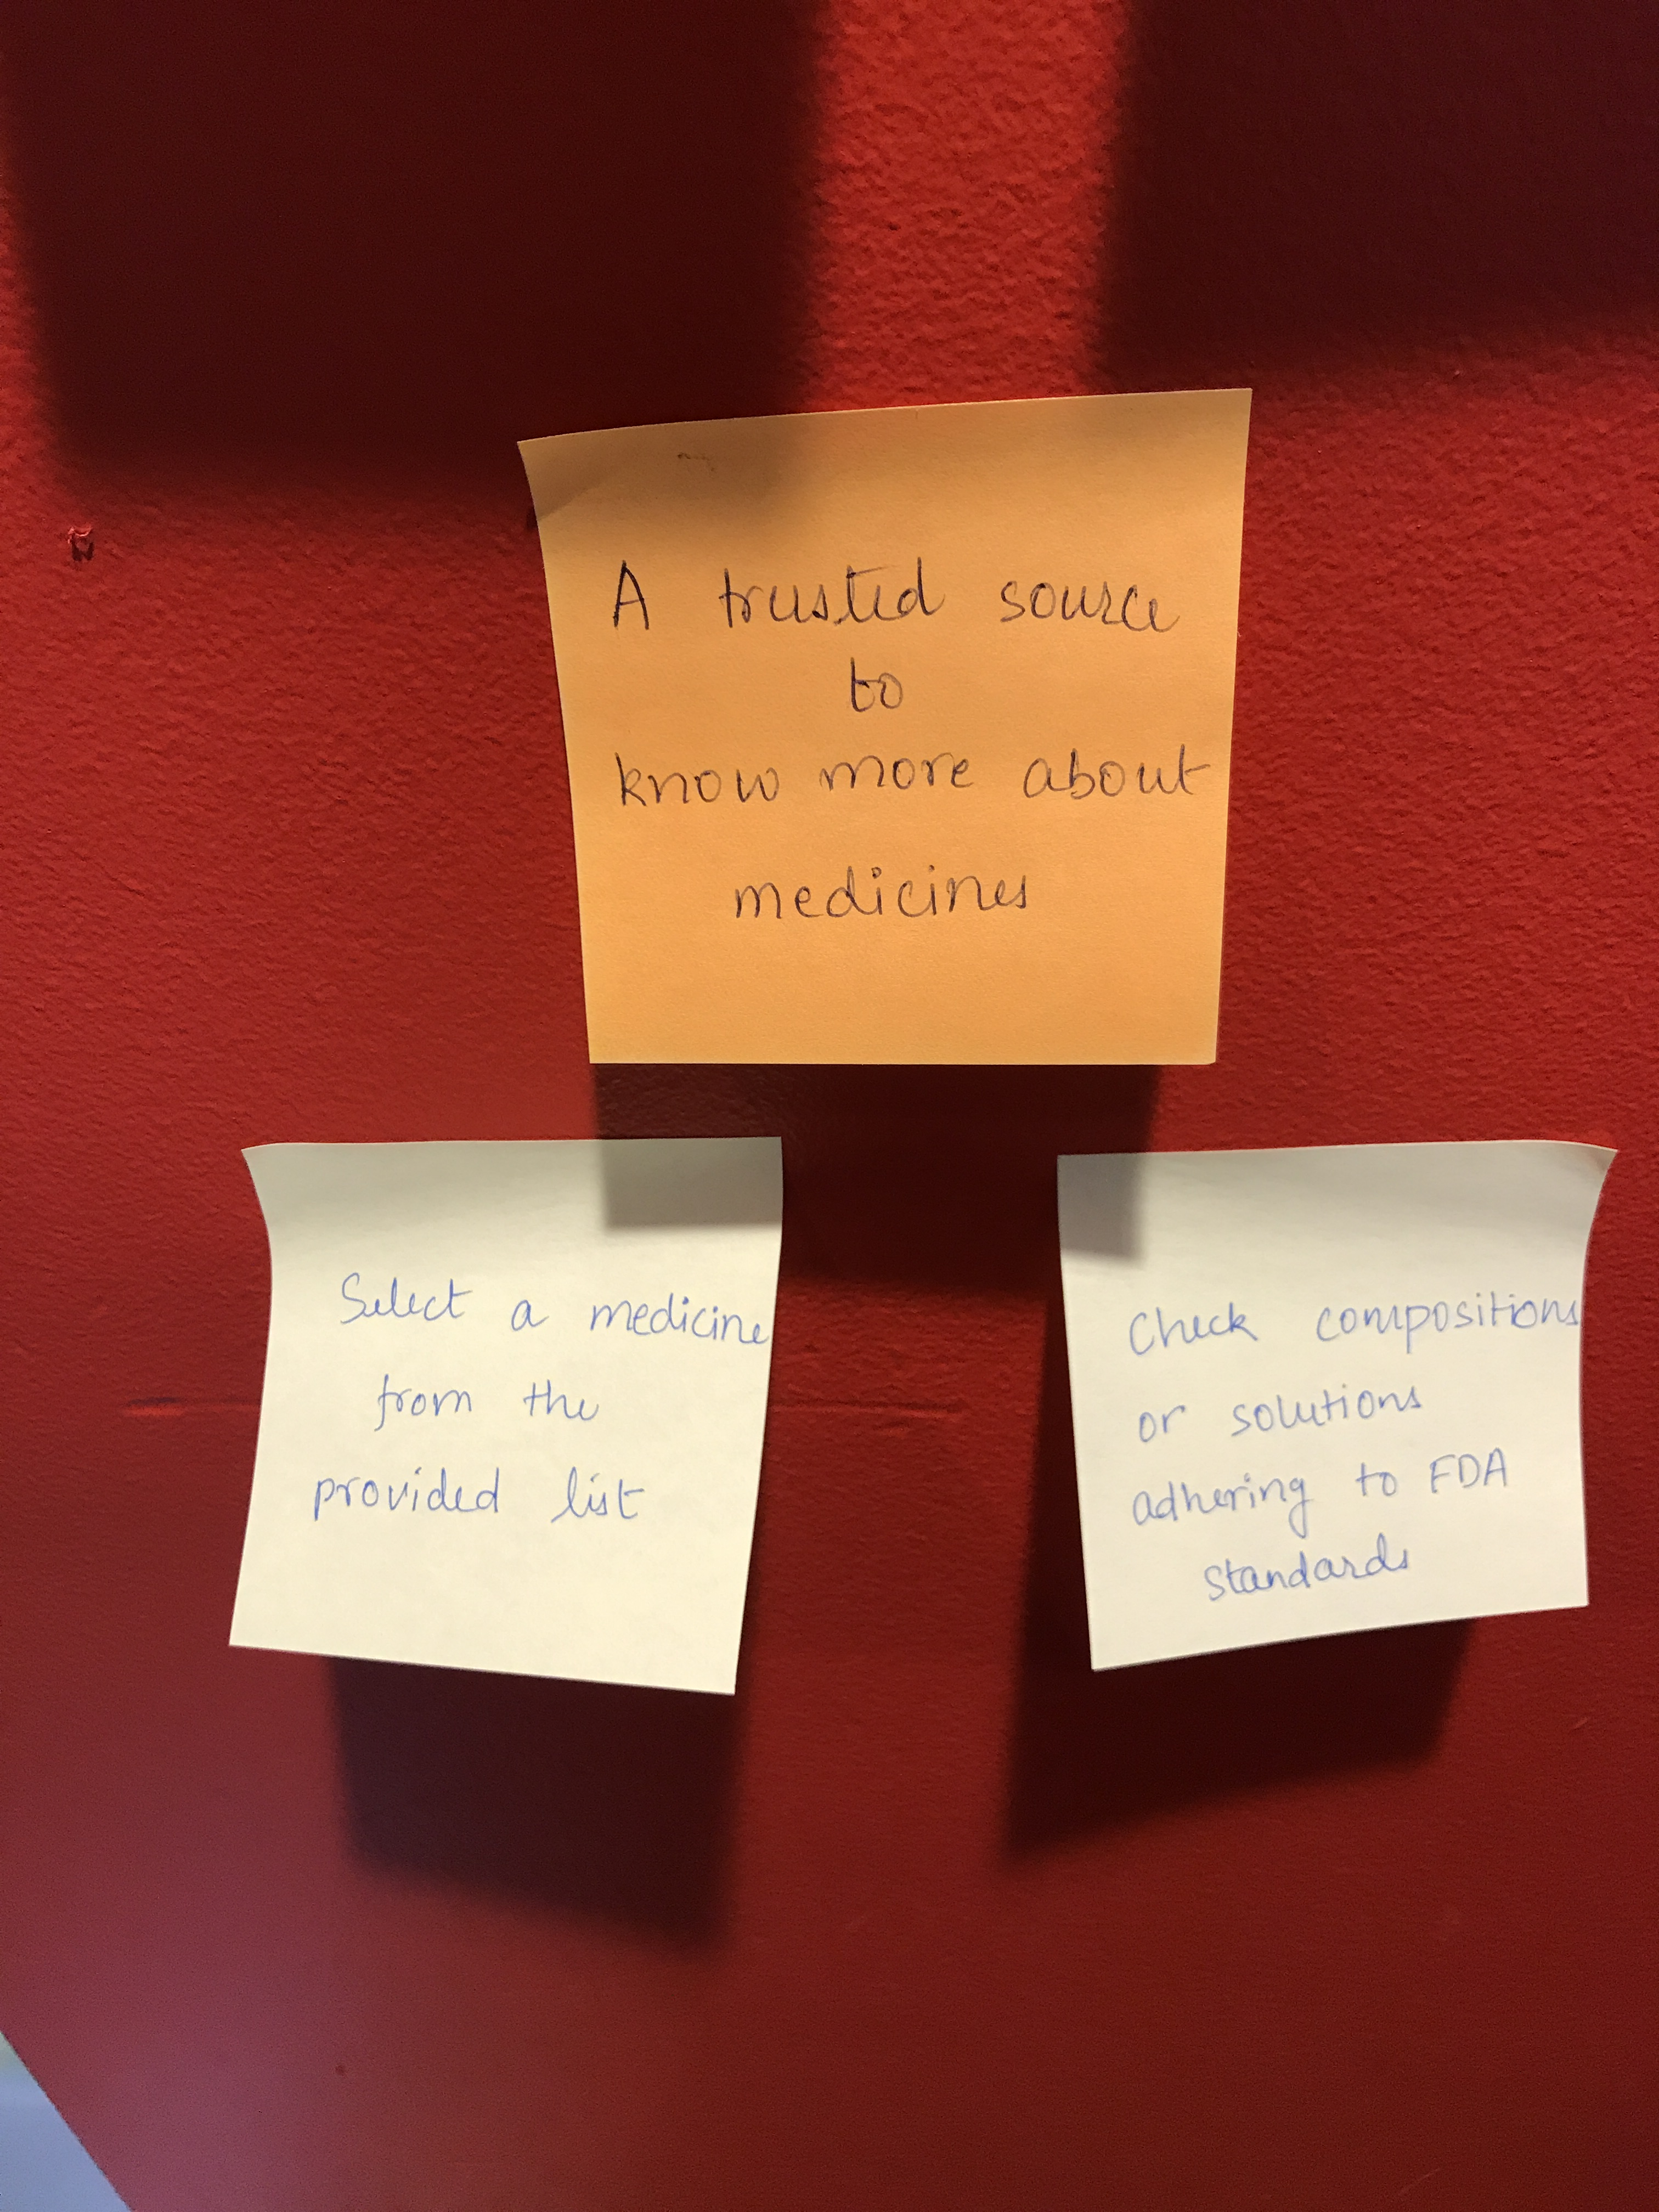 A trusted source
to
know more about
medicines
Select a medicine
from the
provided list
Check compositions
or solutions
adhering to FDA
standards